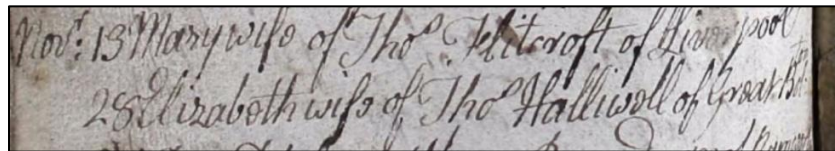 Novr: 13 Mary wife of Thos. Flitcroft of Liverpool
28 Elizabeth wife of Thos Halliwell of Great